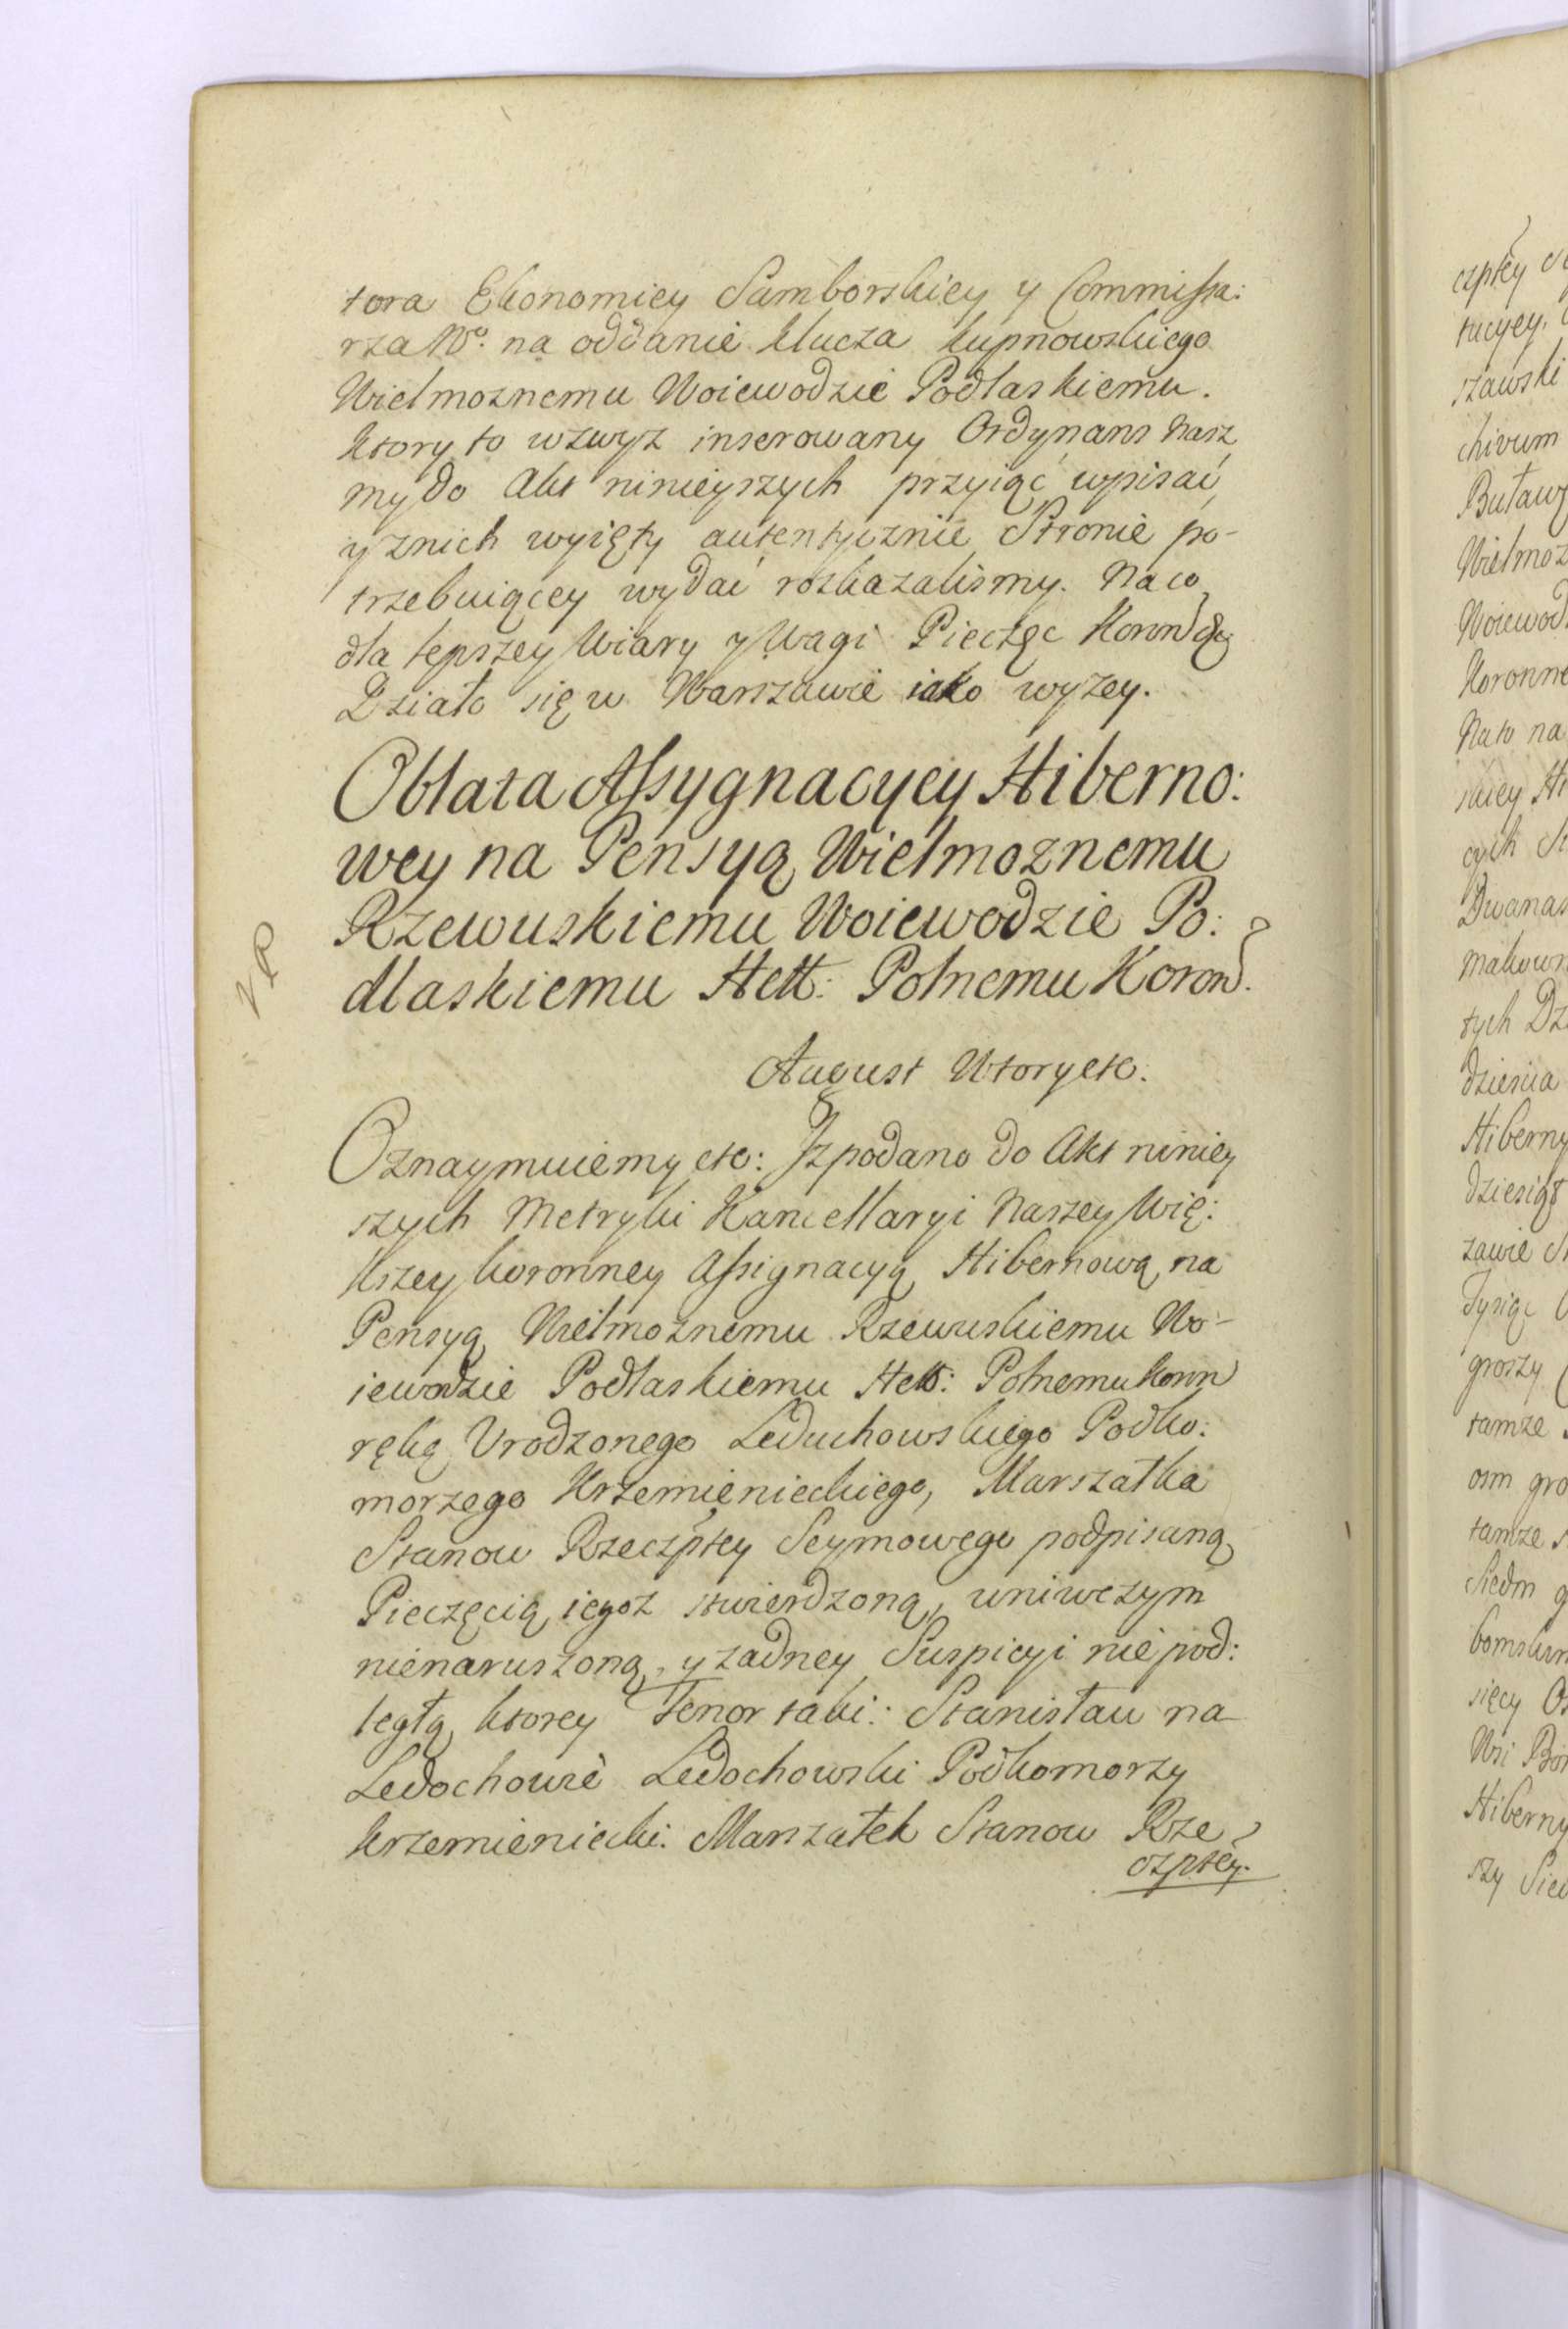 tora Ekonomiey Samborskiey y Commissa:
rza Nº. na oddanie klucza kupnowskiego
Wielmoznemu Woiewodzie Podlaskiemu.
ktory to wzwyz inserowany Ordynans nasz,
my do Akt ninieyszych przyiąć wpisać,
y znich wyięty autentycznie Stronie po-
trzebuiącey wydać roskazalismy. Na co
dla lepszey Wiary y Wagi Pieczęc Koron etc
Działo się w Warszawie iako wyzey.
Oblata Assygnacyey Hiberno:
wey na Pensyą Wielmoznemu
Rzewuskiemu Woiewodzie Po:
dlaskiemu Hett: Polnemu Koron.
VR
August Wtory etc:
Oznaymuiemy etc: Jz podano do Akt niniey
szych Metryki Kancellaryi Naszey Wię:
kszey koronney Assignacyą Hibernową na
Pensyą Wielmoznemu Rzewuskiemu Wo-
iewodzie Podlaskiemu Hett: Polnemu Koron
ręką Vrodzonego Leduchowskiego Podko:
morzego Krzemienieckiego, Marszałka
Stanow Rzeczptey Seymowego podpisaną
Pieczęcią iegoz stwierdzoną, uniwczym
nienaruszoną, y zadney Suspicyi nie pod:
ległą ktorey Tenor taki: Stanisław na
Ledochowie Ledochowski Podkomorzy
krzemieniecki. Marszałek Stanow Rze
czptey.
czptey
tucyey.
szawski
chivum
Buławy
Wielmoz
Woiewod
Koronne
Na to na
cych
Dwanas
makown
tych Dz
dziesia
Hiberny
dziesiąt
zawie
Tysiąc
groszy
tamze
osm gro
tamze
Siedm
sięcy
Wsi
Hiberny
szy Sied